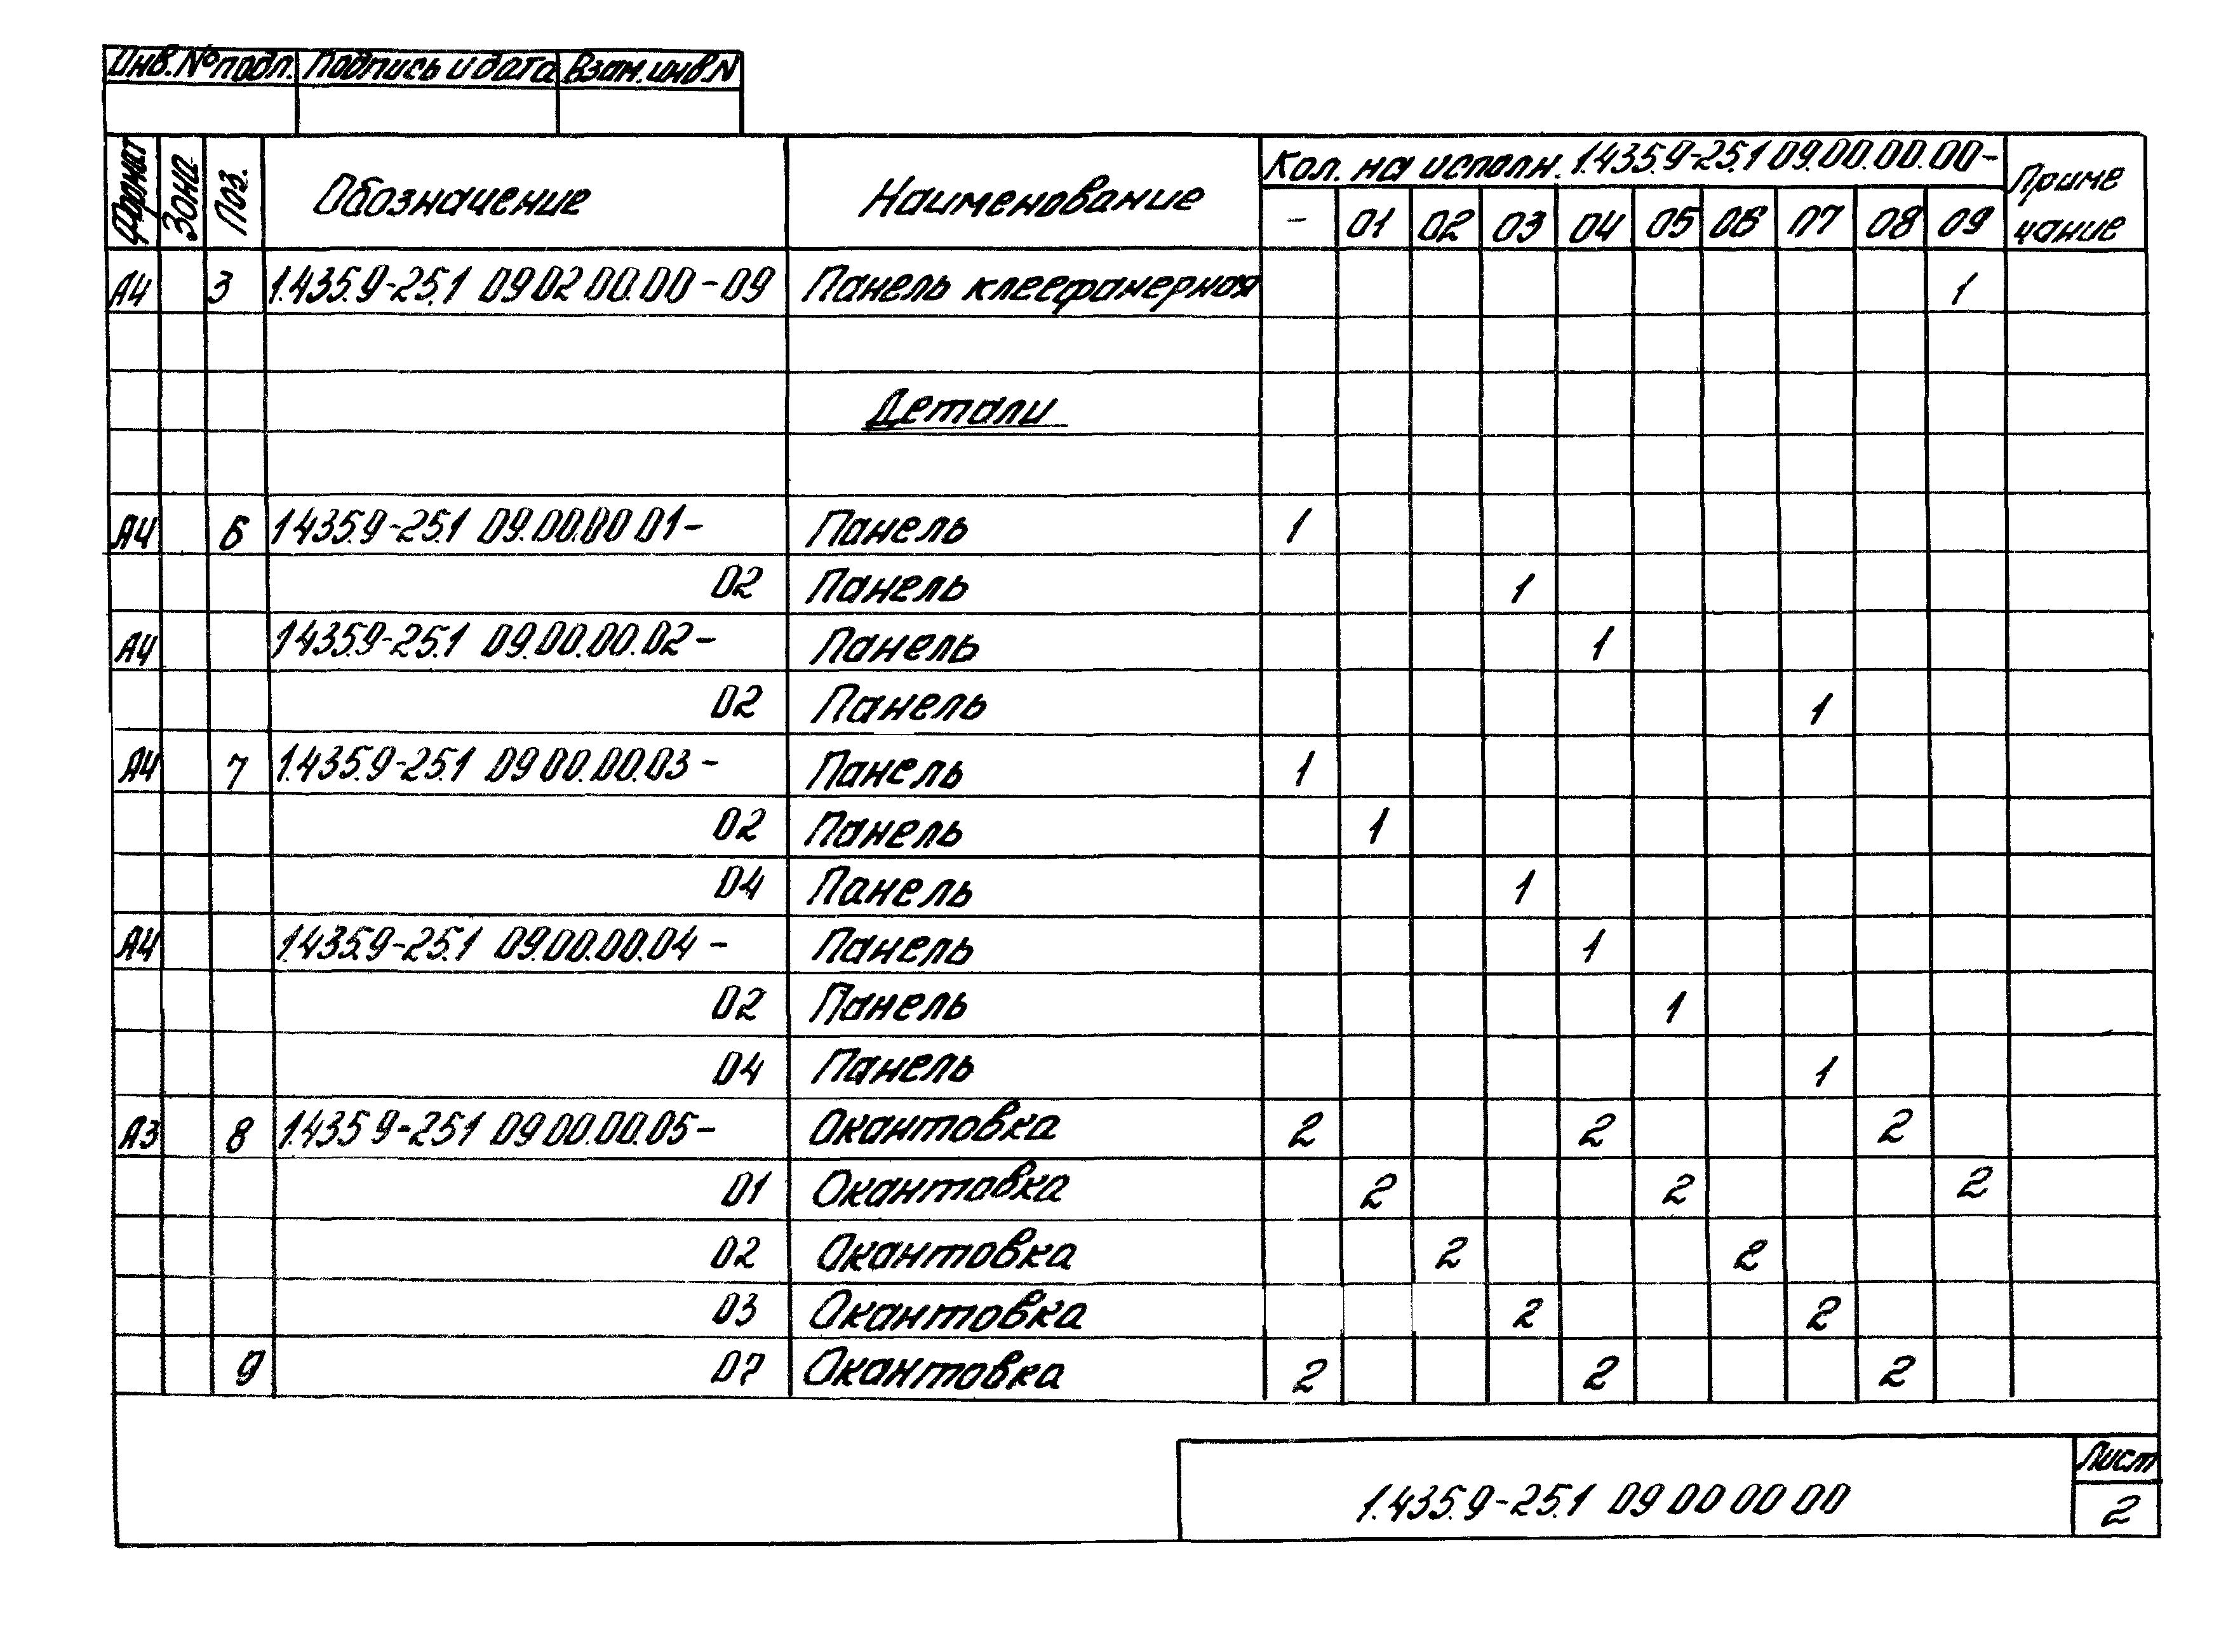 Инв.№подл. Подпись и дата Взам.инв.N
Формат Зона Поз. Обозначение Наименование Кол. на исполн. 1.435.9-25.1 09.00.00.00- Приме
чание
- 01 02 03 04 05 06 07 08 09
А4 3 1.435.9-25.1 09 02 00.00 -09 Панель клеефанерная 1
Детали
А4 6 1.435.9-25.1 09.00.00 01- Панель 1
02 Панель 1
А4 1.435.9-25.1 09.00.00.02- Панель 1
02 Панель 1
А4 7 1.435.9-25.1 09 00.00.03- Панель 1
02 Панель 1
04 Панель 1
А4 1.435.9-25.1 09.00.00.04- Панель 1
02 Панель 1
04 Панель 1
А3 8 1.435 9-25.1 09 00.00.05- Окантовка 2 2 2
01 Окантовка 2 2 2
02 Окантовка 2 2
03 Окантовка 2 2
9 07 Окантовка 2 2 2
1.435.9-25.1 09 00 00 00
Лист
2